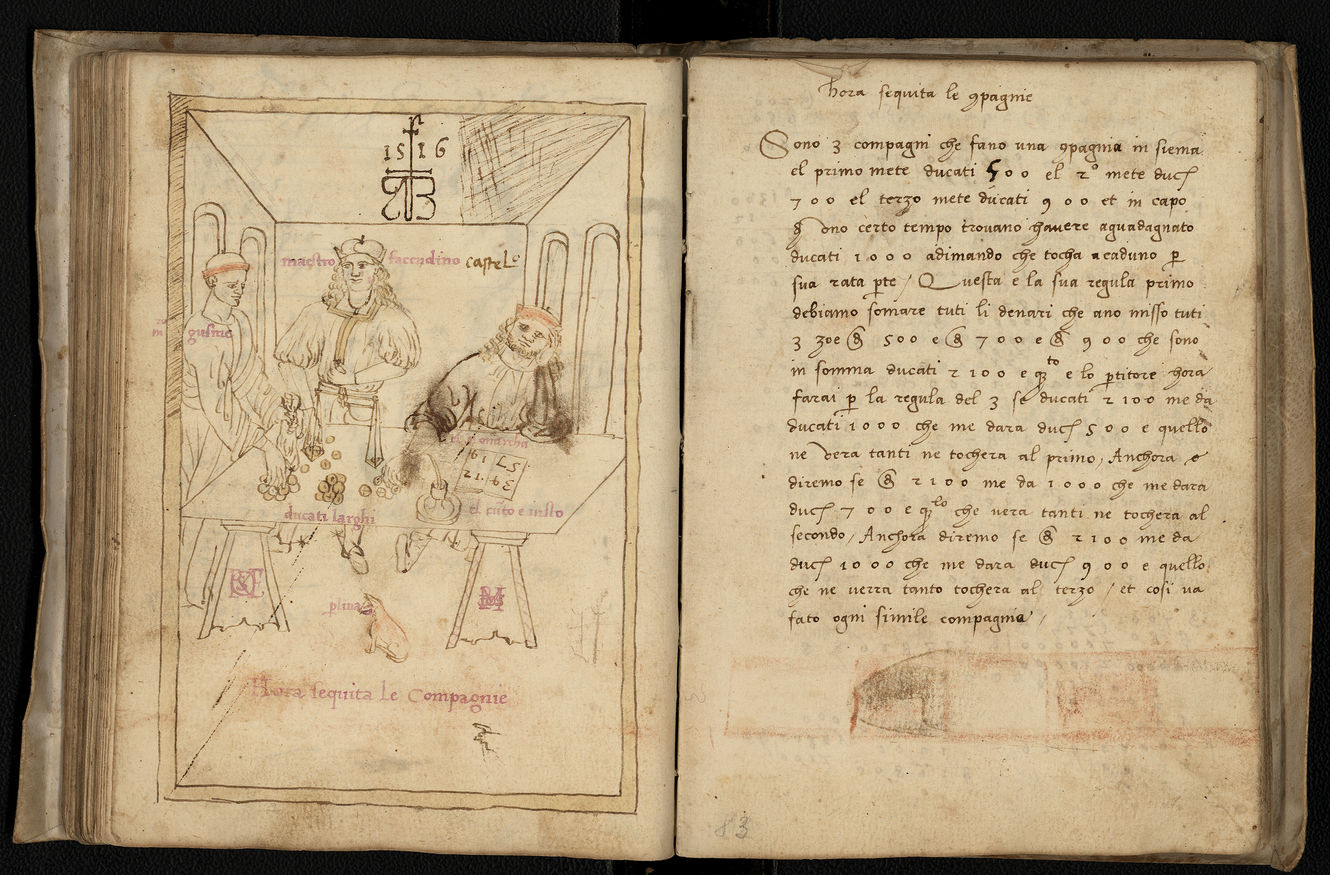 1516
maestro faccndino castelo
gusme
el monarcha
61 L5
21.63
ducati larghi
el cuto e iusto
plina
Hora sequita le Compagnie
hora sequita le 9pagnie
Sono 3 compagni che fano una 9pagnia in siema
el primo mete ducati 500 el 2º mete ducʃ
700 el terzo mete ducati 900 et in capo
uno certo tempo trouano hauere aguadagnato
ducati 1000 adimando che tocha acaduno ꝑ
sua rata ꝑte / Questa e la sua regula primo
debiamo somare tuti li denari che ano misso tuti
3 zoe 500 e 700 e 900 che sono
in somma ducati 2100 e qto e lo ꝑtitore hora
farai ꝑ la regula del 3 se ducati 2100 me da
ducati 1000 che me dara ducʃ 500 e quello
ne vera tanti ne tochera al primo, Anchora
diremo se 2100 me da 1000 che me dara
ducʃ 700 e qlo che vera tanti ne tochera al
secondo, Anchora diremo se 2100 me da
ducʃ 1000 che me dara ducʃ 900 e quello
che ne verra tanto tochera al terzo / et cosi va
fato ogni simile compagnia /
83